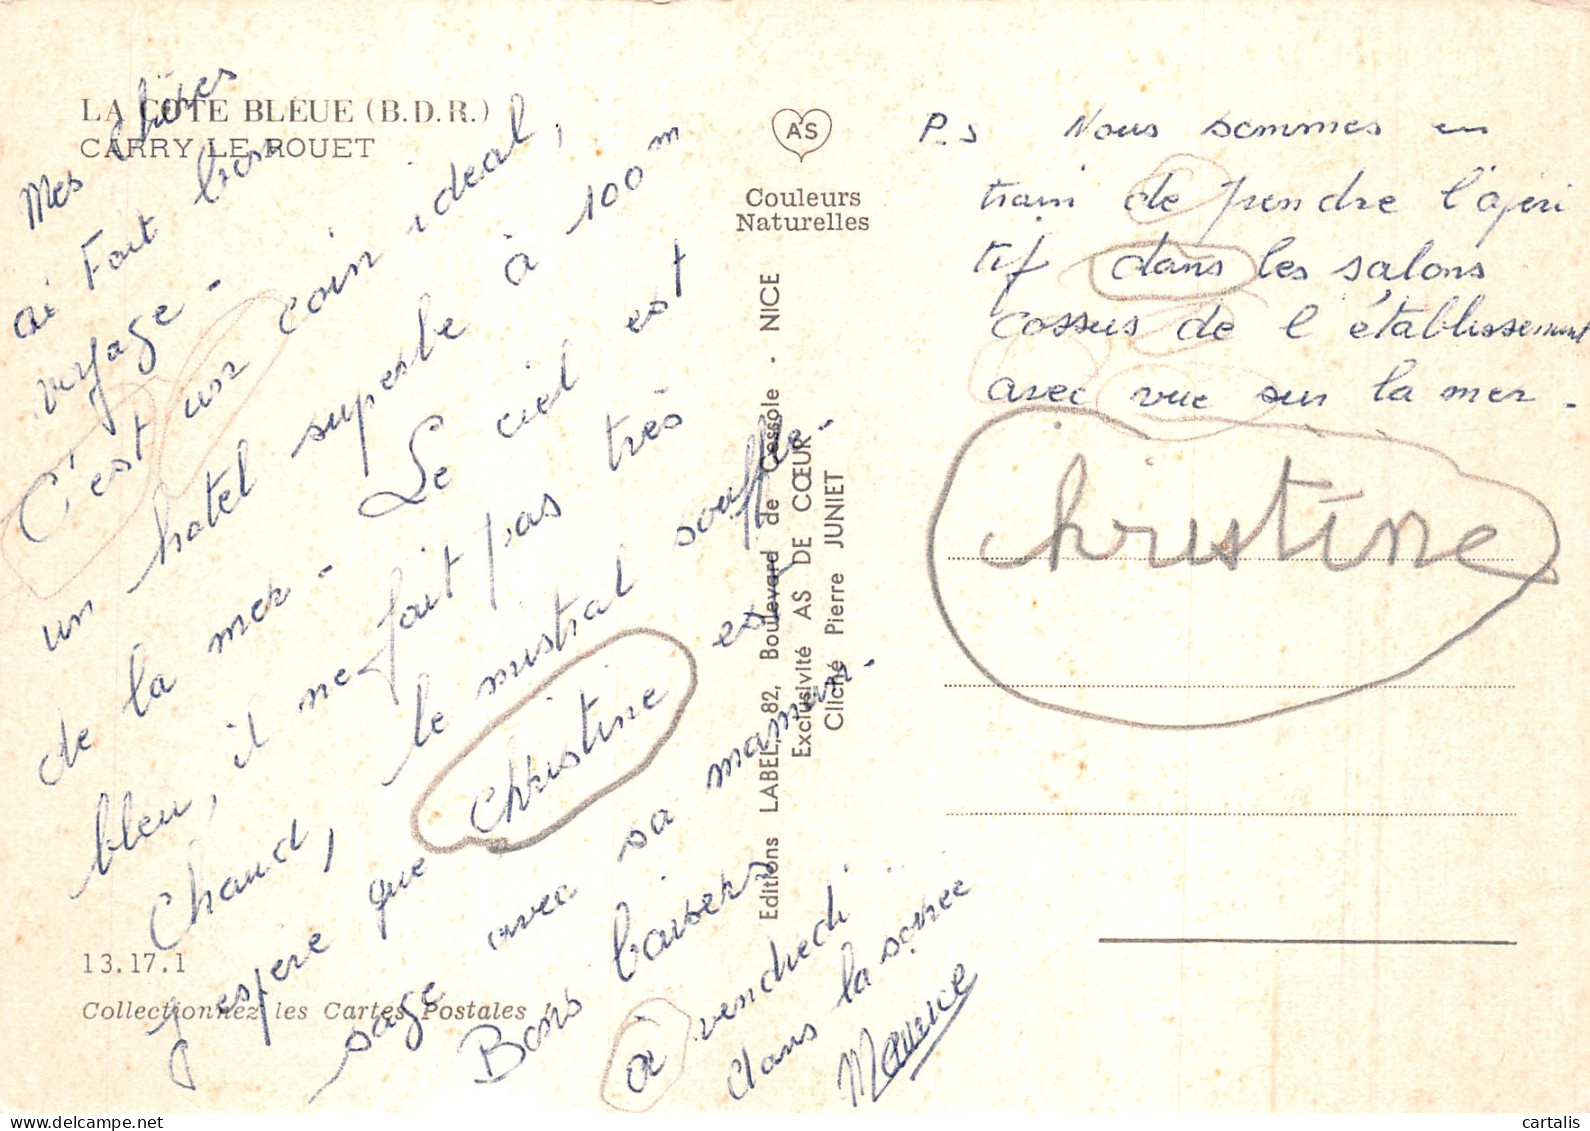 LA COTE BLEUE (B.D.R.)
CARRY LE ROUET
Mes chères
ai Fait bon
voyage -
C'est un coin ideal,
un hotel superbe à 100m
de la mer - Le ciel est
bleu, il ne fait pas très
Chaud, le mistral souffle -
J espère que christine est
sage avec sa maman -
Bons baisers
à vendredi
dans la soiree
Maurice
13.17.1
Collectionnez les Cartes Postales !
AS
Couleurs
Naturelles
Editions LABEL, 82, Boulevard de Cessole - NICE
Exclusivité AS DE CŒUR
Cliché Pierre JUNIET
P.S Nous sommes en
train de prendre l'apéri
tif dans les salons
cossus de l'établissement
avec vue sur la mer -
christine
www.delcampe.net
cartalis